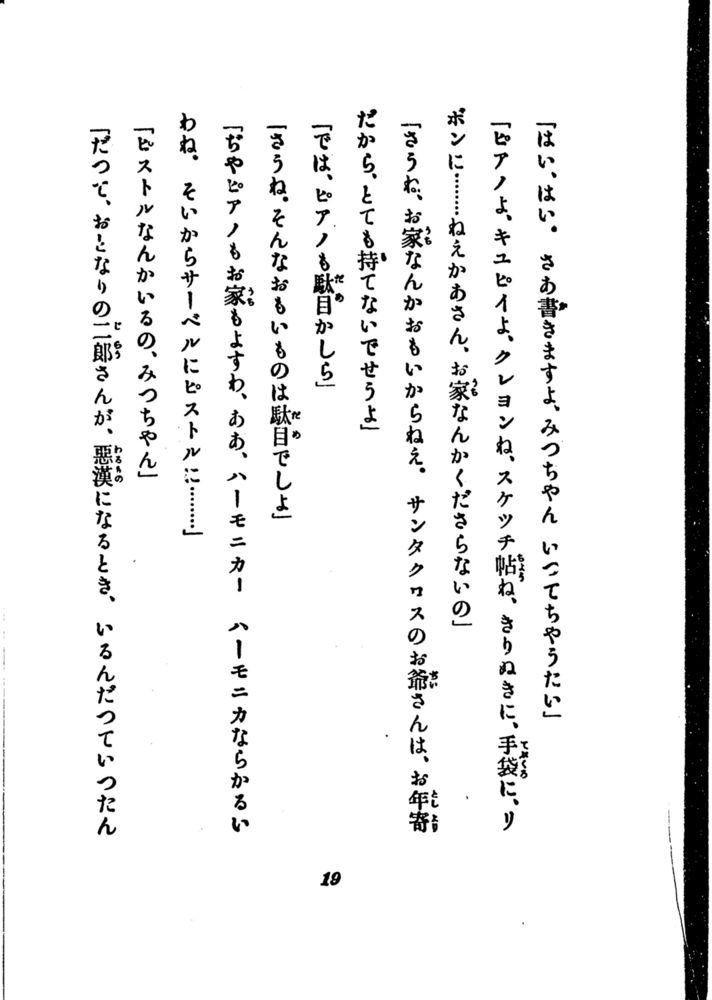 「はい、はい。 さあ書きますよ、みつちやん いつてちやうたい」
「ピアノよ、キユピイよ、クレヨンね、スケツチ帖ね、きりぬきに、手袋に、リ
ボンに………ねえかあさん、お家なんかくださらないの」
「さうね、お家なんかおもいからねえ。 サンタクロスのお爺さんは、お年寄
だから、とても持てないでせうよ」
「では、ピアノも駄目かしら」
「さうね。そんなおもいものは駄目でしよ」
「ぢやピアノもお家もよすわ、ああ、ハーモニカー ハーモニカならかるい
わね。 そいからサーベルにピストルに………」
「ピストルなんかいるの、みつちやん」
「だつて、おとなりの二郎さんが、悪漢になるとき、いるんだつていつたん
19